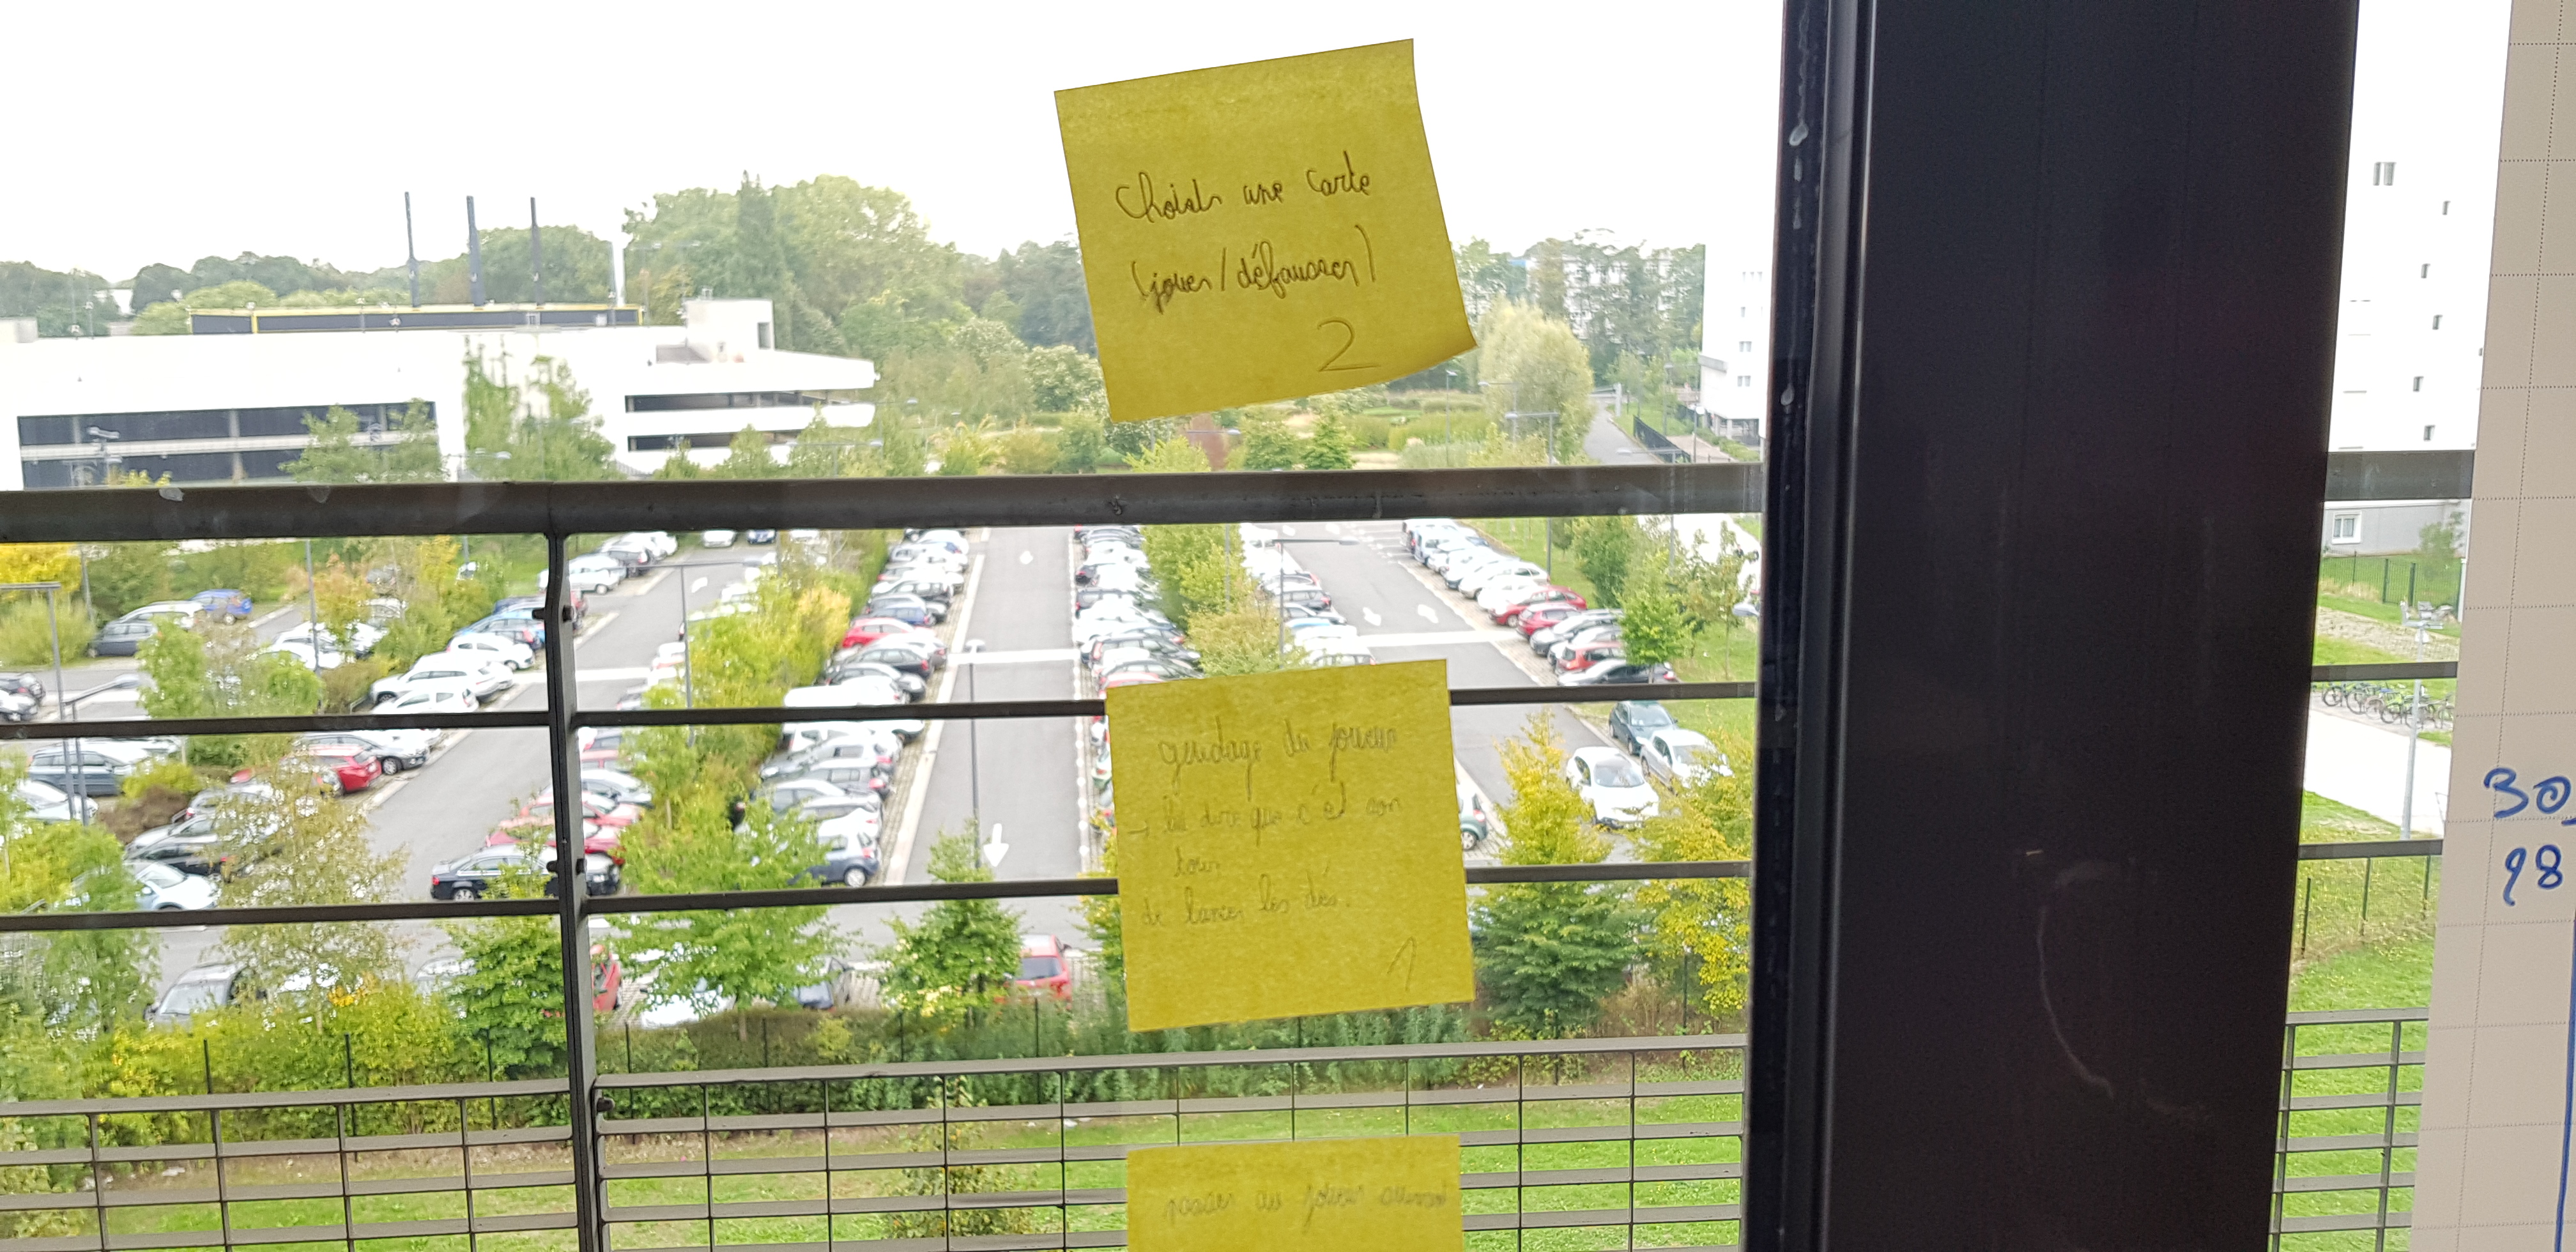 Choisir une carte
(jouer/défausser)
2
guidage du joueur
→ lui dire que c'est son
tour
de lancer les dés.
1
passer au joueur suivant
30
98